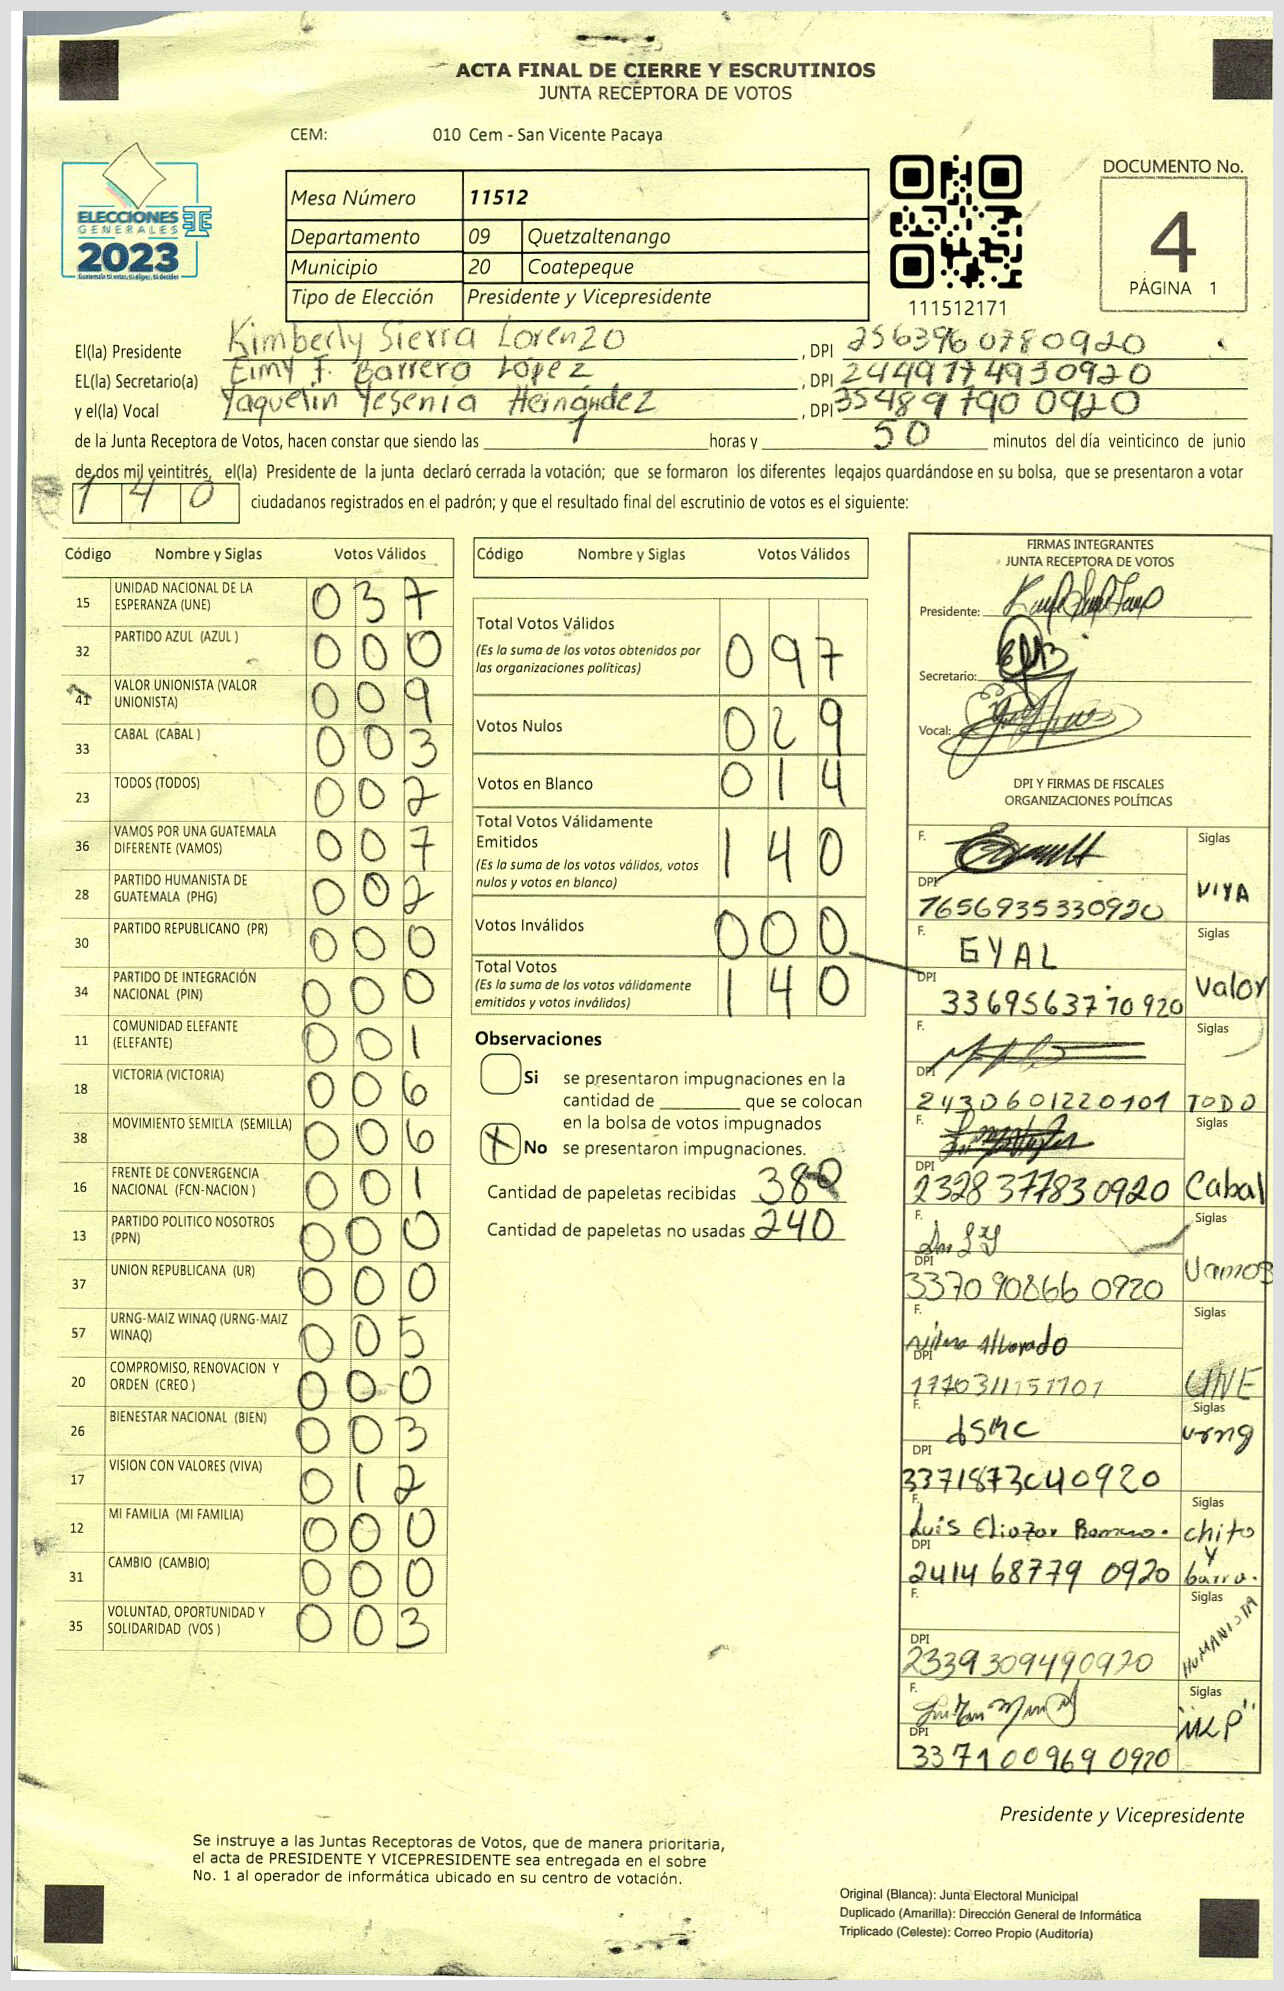 ACTA FINAL DE CIERRE Y ESCRUTINIOS
JUNTA RECEPTORA DE VOTOS
CEM: 010 Cem - San Vicente Pacaya
ELECCIONES
GENERALES
2023
Mesa Número 11512
Departamento 09 Quetzaltenango
Municipio 20 Coatepeque
Tipo de Elección Presidente y Vicepresidente
111512171
DOCUMENTO No.
4
PÁGINA 1
El(la) Presidente Kimberly Sierra Lorenzo , DPI 256396 0780920
EL(la) Secretario(a) Eimy F. Barrera López , DPI 2449774930920
y el(la) Vocal Yaquelin Yesenia Hernández , DPI 35489 790 0920
de la Junta Receptora de Votos, hacen constar que siendo las 1 horas y 50 minutos del día veinticinco de junio
de dos mil veintitrés, el(la) Presidente de la junta declaró cerrada la votación; que se formaron los diferentes legajos guardándose en su bolsa, que se presentaron a votar
140 ciudadanos registrados en el padrón; y que el resultado final del escrutinio de votos es el siguiente:
Código Nombre y Siglas Votos Válidos
15 UNIDAD NACIONAL DE LA ESPERANZA (UNE) 037
32 PARTIDO AZUL (AZUL ) 000
41 VALOR UNIONISTA (VALOR UNIONISTA) 009
33 CABAL (CABAL ) 003
23 TODOS (TODOS) 002
36 VAMOS POR UNA GUATEMALA DIFERENTE (VAMOS) 007
28 PARTIDO HUMANISTA DE GUATEMALA (PHG) 002
30 PARTIDO REPUBLICANO (PR) 000
34 PARTIDO DE INTEGRACIÓN NACIONAL (PIN) 000
11 COMUNIDAD ELEFANTE (ELEFANTE) 001
18 VICTORIA (VICTORIA) 006
38 MOVIMIENTO SEMILLA (SEMILLA) 006
16 FRENTE DE CONVERGENCIA NACIONAL (FCN-NACION ) 001
13 PARTIDO POLITICO NOSOTROS (PPN) 000
37 UNION REPUBLICANA (UR) 000
57 URNG-MAIZ WINAQ (URNG-MAIZ WINAQ) 005
20 COMPROMISO, RENOVACION Y ORDEN (CREO ) 000
26 BIENESTAR NACIONAL (BIEN) 003
17 VISION CON VALORES (VIVA) 012
12 MI FAMILIA (MI FAMILIA) 000
31 CAMBIO (CAMBIO) 000
35 VOLUNTAD, OPORTUNIDAD Y SOLIDARIDAD (VOS ) 003
Código Nombre y Siglas Votos Válidos
Total Votos Válidos 097
(Es la suma de los votos obtenidos por
las organizaciones políticas)
Votos Nulos 029
Votos en Blanco 014
Total Votos Válidamente
Emitidos 140
(Es la suma de los votos válidos, votos
nulos y votos en blanco)
Votos Inválidos 000
Total Votos 140
(Es la suma de los votos válidamente
emitidos y votos inválidos)
Observaciones
Si se presentaron impugnaciones en la
cantidad de ________ que se colocan
en la bolsa de votos impugnados
X No se presentaron impugnaciones.
Cantidad de papeletas recibidas 380
Cantidad de papeletas no usadas 240
FIRMAS INTEGRANTES
JUNTA RECEPTORA DE VOTOS
Presidente:
Secretario:
Vocal:
DPI Y FIRMAS DE FISCALES
ORGANIZACIONES POLÍTICAS
F. Siglas VIVA
DPI 7656935330920
F. GYAL Siglas Valor
DPI 3369563770920
F. Siglas TODO
DPI 2430601220101
F. Siglas Cabal
DPI 2328377830920
F. Siglas Vamos
DPI 3370908660920
F. Alvarado Siglas UNE
DPI 1770311151701
F. Siglas urng
DPI 3371873040920
F. Luis Eliazar Romero. Siglas chito y barra.
DPI 2414 68779 0920
F. Siglas HUMANISTA
DPI 2339309490920
F. Siglas "MLP"
DPI 3371009690920
Presidente y Vicepresidente
Se instruye a las Juntas Receptoras de Votos, que de manera prioritaria,
el acta de PRESIDENTE Y VICEPRESIDENTE sea entregada en el sobre
No. 1 al operador de informática ubicado en su centro de votación.
Original (Blanca): Junta Electoral Municipal
Duplicado (Amarilla): Dirección General de Informática
Triplicado (Celeste): Correo Propio (Auditoría)